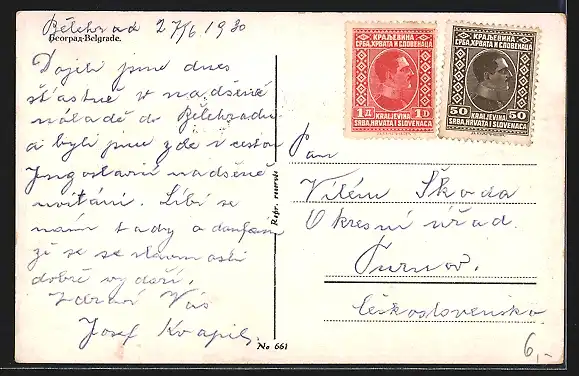 Bělehrad 27/6 1930
Београд-Belgrade.
Dojeli jsme dnes
šťastně v nadšené
náladě do Bělehradu
a byli jsme zde v
Jugoslavii nadšeně
uvítáni. Líbí se
nám tady a doufám
že se se slavností
dobře vydaří.
Zdraví Vás
Josef Kvapil
КРАЉЕВИНА
СРБА,ХРВАТА И СЛОВЕНАЦА
1 Д 1 D
KRALJEVINA
SRBA,HRVATA I SLOVENACA
КРАЉЕВИНА
СРБА,ХРВАТА И СЛОВЕНАЦА
50 50
KRALJEVINA
SRBA,HRVATA I SLOVENACA
Pan
Vilém Škoda
Okresní úřad.
Turnov.
Československo
Repr. reservée
No 661
6,-